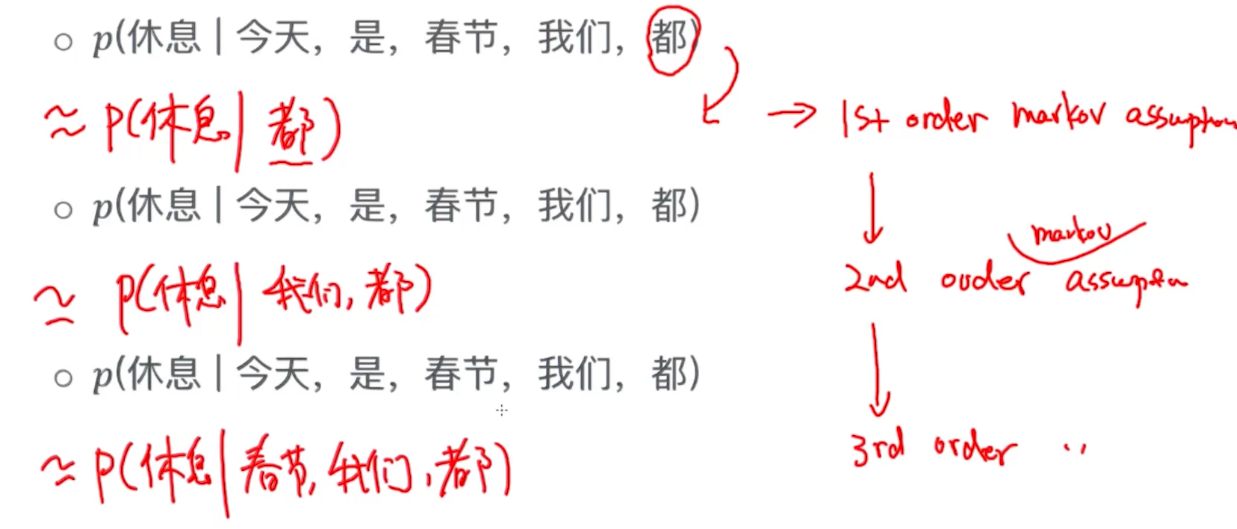 ○ p(休息 | 今天，是，春节，我们，都)
≈ p(休息 | 都)
→ 1st order markov assumption
○ p(休息 | 今天，是，春节，我们，都)
≃ p(休息 | 我们, 都)
↓ markov
2nd order assumption
○ p(休息 | 今天，是，春节，我们，都)
≃ p(休息 | 春节, 我们, 都)
↓
3rd order ..